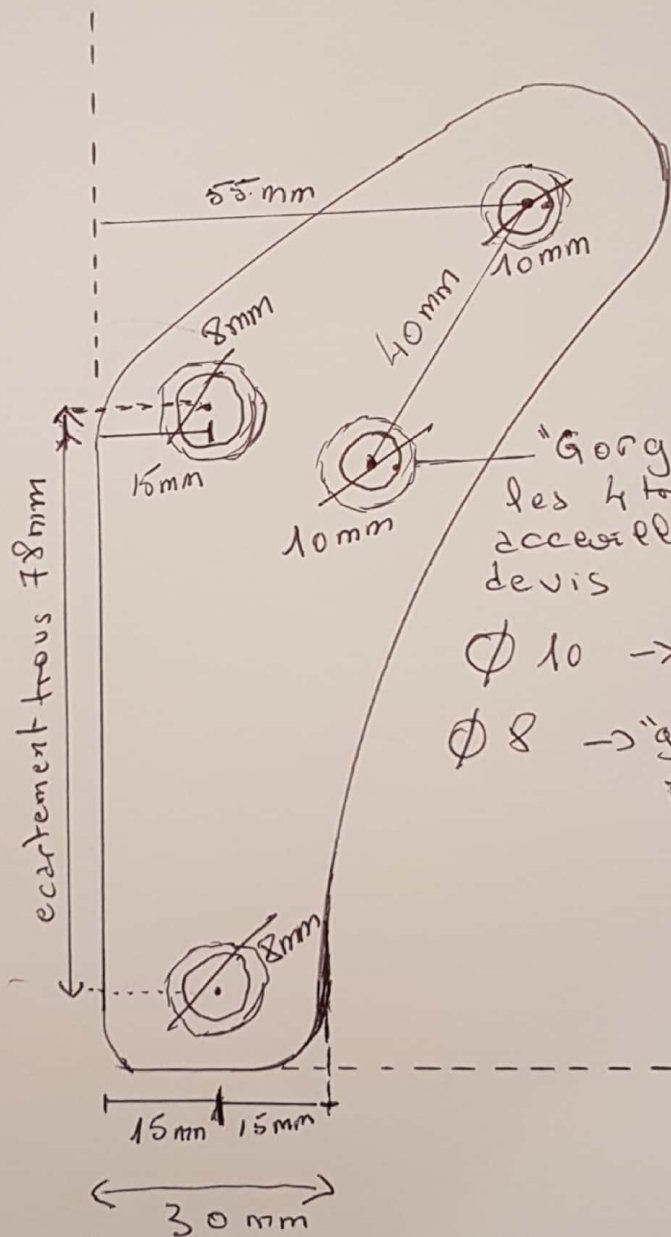 55 mm
10mm
8mm
40mm
15mm
10mm
"Gorg
les 4
devis
Ø 10 ->
Ø 8 -> "g
ecartement trous 78mm
8mm
15mm 15mm
30 mm